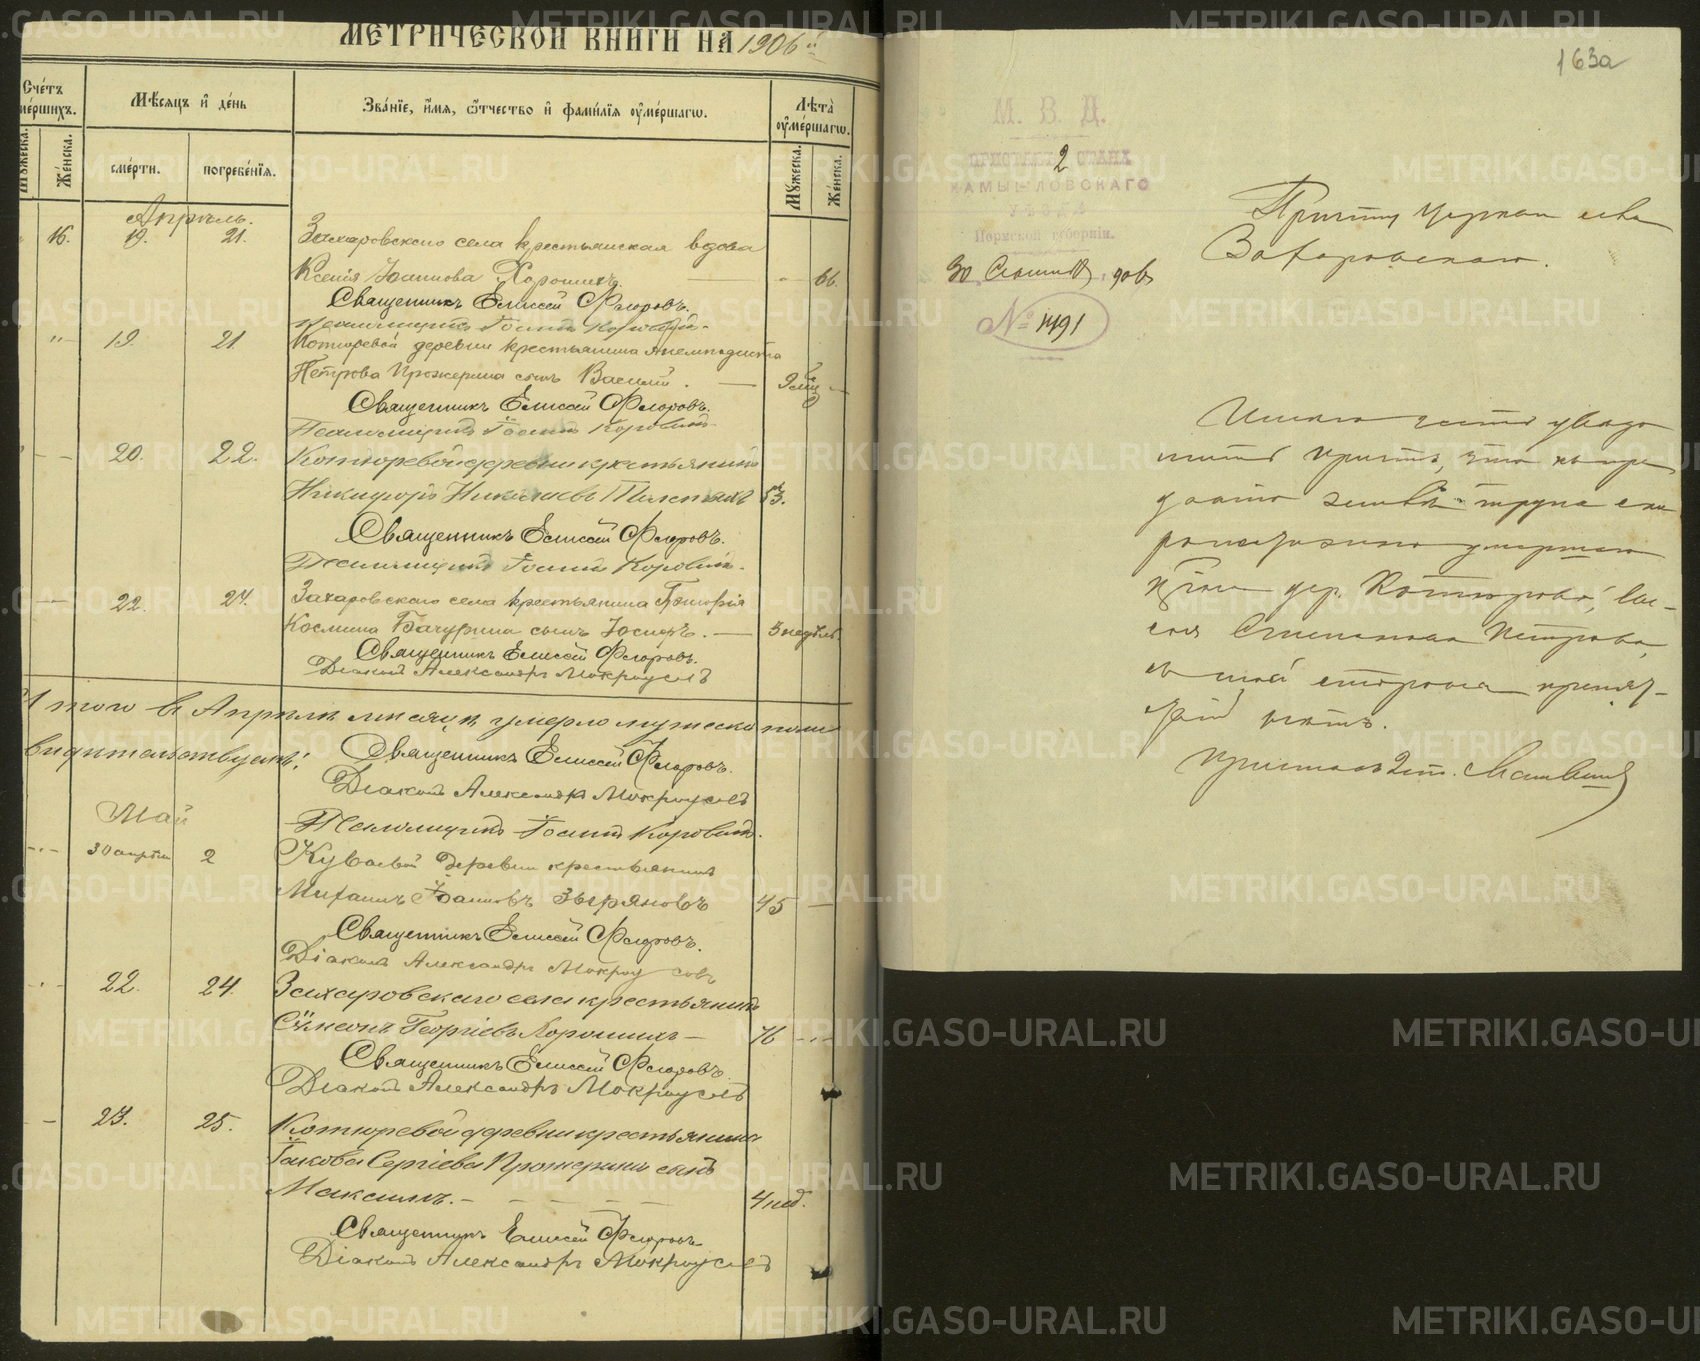 МЕТРИЧЕСКОЙ КНИГИ НА 1906 й
Счетъ умершихъ.
Мѣсяцъ и день
Званіе, имя, отчество и фамилія умершаго.
Лѣта умершаго.
Мужеска.
Женска.
смерти.
погребенія.
Мужеска.
Женска.
Апрѣль.
16. 19. 21. Захаровскаго села крестьянская вдова
Ксенія Іоаннова Хорошихъ. — - 66.
Священникъ Елисей Флоровъ.
Псаломщикъ Іоаннъ Коровинъ.
"- 19. 21. Котюревой деревни крестьянина
Петрова Прожерина сынъ Василій. — 9 мѣс.
Священникъ Елисей Флоровъ.
Псаломщикъ Іоаннъ Коровинъ.
20. 22. Котюревой деревни крестьянинъ
Никифоръ Николаевъ 53.
Священникъ Елисей Флоровъ.
Псаломщикъ Іоаннъ Коровинъ.
22. 24. Захаровскаго села крестьянина Григорія
Космина Бачурина сынъ Іосифъ. — 3 недѣль.
Священникъ Елисей Флоровъ.
Діаконъ Александръ Мокроусовъ
Итого въ Апрѣлѣ мѣсяцѣ умерло мужеска пола
видѣтельствуемъ:
Священникъ Елисей Флоровъ.
Діаконъ Александръ Мокроусовъ
Псаломщикъ Іоаннъ Коровинъ.
Май
30 апрѣля 2 Куваевой деревни крестьянинъ
Михаилъ Іоанновъ Зыряновъ 45 —
Священникъ Елисей Флоровъ.
Діаконъ Александръ Мокроусовъ
22. 24. Захаровскаго села крестьянинъ
Сѵмеонъ Георгіевъ Хорошихъ — 76
Священникъ Елисей Флоровъ.
Діаконъ Александръ Мокроусовъ
23. 25. Котюревой деревни крестьянина
Іакова Сергіева Прожерина сынъ
Максимъ. - 4 нед.
Священникъ Елисей Флоровъ.
Діаконъ Александръ Мокроусовъ
163а
М. В. Д.
ПРИСТАВЪ 2 СТАНА
КАМЫШЛОВСКАГО
УѢЗДА
Пермской губерніи.
30 1906
№ 1191
Причту церкви села
Захаровскаго.
Имѣю честь увѣдо
мить причтъ, что къ пре
данію землѣ трупа ско
ропостижно умершаго
кр-на дер. Котюровой, Ва-
силія Степанова Петрова,
съ моей стороны препят-
ствій нѣтъ.
Приставъ 2 ст.
METRIKI.GASO-URAL.RU